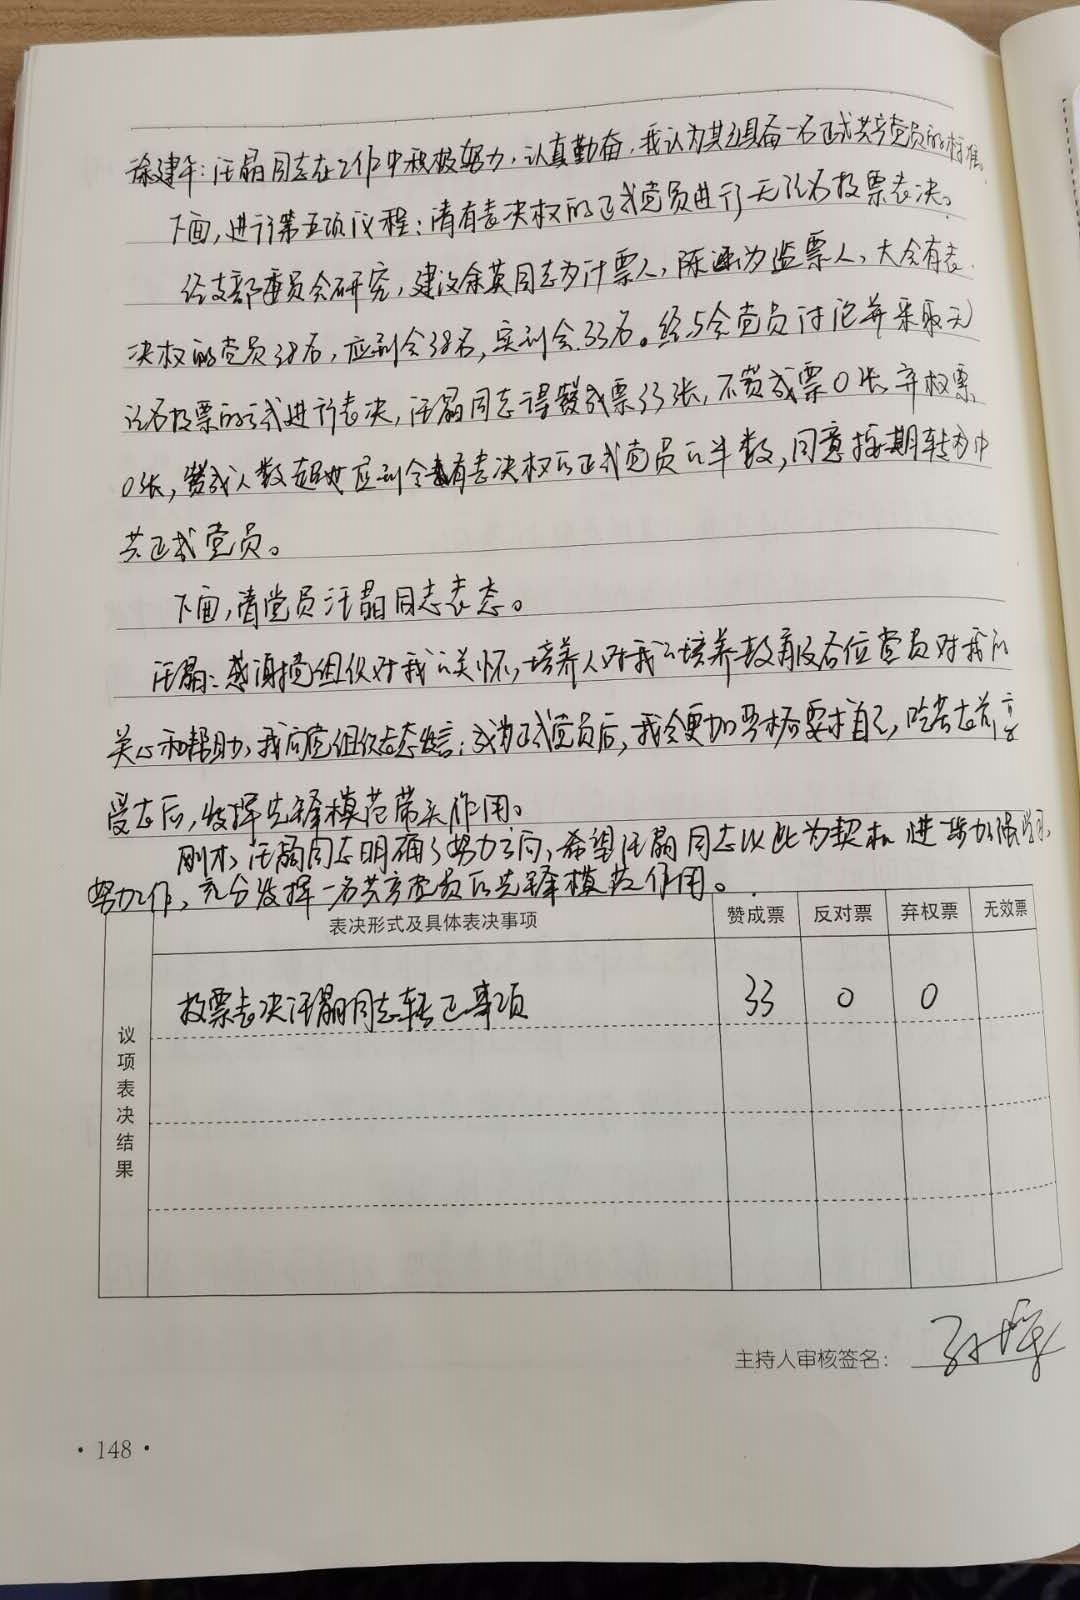 徐建午：汪晶同志在工作中积极努力，认真勤奋，我认为其已具备一名正式共产党员的标准。
下面，进行第五项议程：请有表决权的正式党员进行无记名投票表决。
经支部委员会研究，建议余英同志为计票人，陈涵为监票人，大会有表
决权的党员38名，应到会38名，实到会33名。经与会党员讨论并采取无
记名投票的方式进行表决，汪晶同志得赞成票33张，不赞成票0张，弃权票
0张，赞成人数超过应到会有表决权的正式党员的半数，同意按期转为中
共正式党员。
下面，请党员汪晶同志表态。
汪晶：感谢党组织对我的关怀，培养人对我的培养教育及各位党员对我的
关心和帮助，我向党组织表态发言：成为正式党员后，我会更加严格要求自己，吃苦在前，享
受在后，发挥先锋模范带头作用。
刚才，汪晶同志明确了努力方向，希望汪晶同志以此为契机，进一步加强学习，
努力工作，充分发挥一名共产党员的先锋模范作用。
表决形式及具体表决事项 赞成票 反对票 弃权票 无效票
投票表决汪晶同志转正事项 33 0 0
议项表决结果
主持人审核签名：
·148·